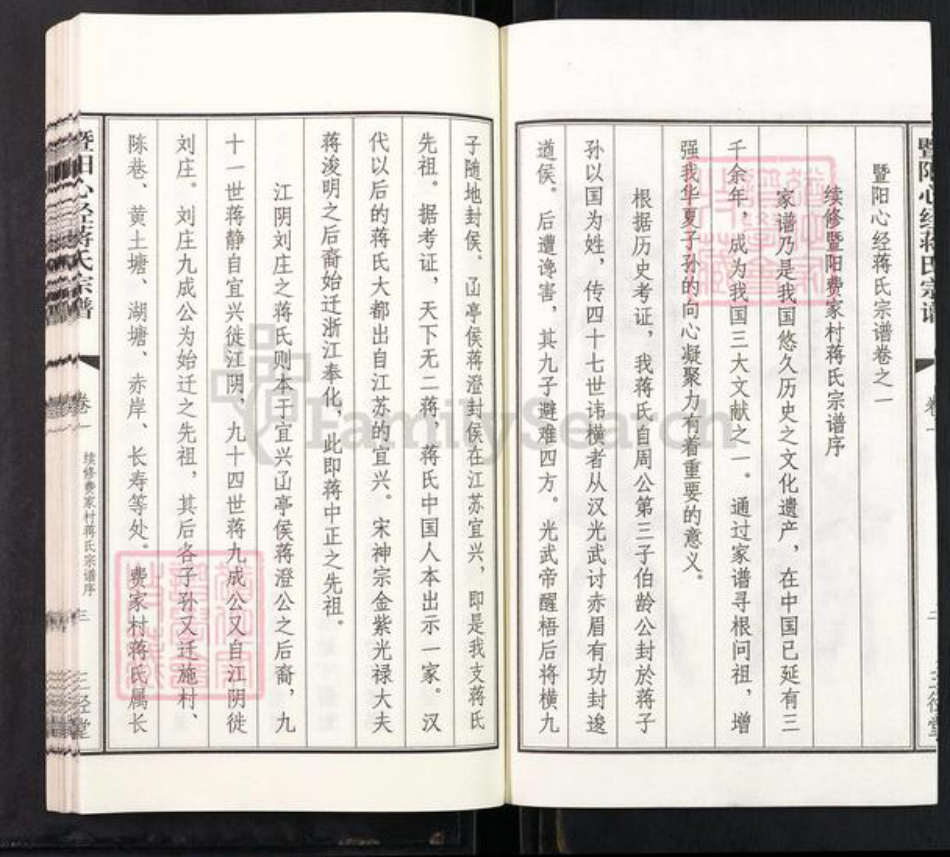 暨阳心经蒋氏宗谱卷之一
续修暨阳费家村蒋氏宗谱序
家谱乃是我国悠久历史之文化遗产，在中国已延有三
千余年，成为我国三大文献之一。通过家谱寻根问祖，增
强我华夏子孙的向心凝聚力有着重要的意义。
根据历史考证，我蒋氏自周公第三子伯龄公封於蒋子
孙以国为姓，传四十七世讳横者从汉光武讨赤眉有功封逡
道侯。后遭谗害，其九子避难四方。光武帝醒梧后将横九
子随地封侯、㓰亭侯蒋澄封侯在江苏宜兴，即是我支蒋氏
先祖。据考证，天下无二蒋，蒋氏中国人本出示一家。汉
代以后的蒋氏大都出自江苏的宜兴。宋神宗金紫光禄大夫
蒋浚明之后裔始迁浙江奉化，此即蒋中正之先祖。
江阴刘庄之蒋氏则本于宜兴㓰亭侯蒋澄公之后裔，九
十一世蒋静自宜兴徙江阴，九十四世蒋九成公又自江阴徙
刘庄。刘庄九成公为始迁之先祖，其后各子孙又迁施村、
陈巷、黄土塘、湖塘、赤岸、长寿等处。费家村蒋氏属长
暨阳心经蒋氏宗谱
卷一
续修费家村蒋氏宗谱序
三
三径堂
FamilySearch